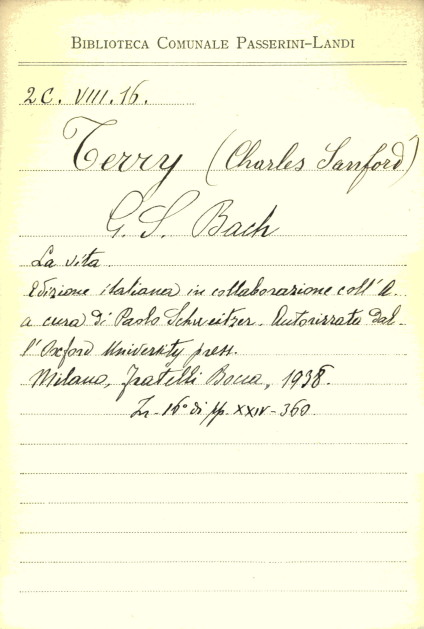 BIBLIOTECA COMUNALE PASSERINI-LANDI
2C. VIII. 16.
Terry (Charles Sanford)
G. S. Bach
La vita
Edizione italiana in collaborazione coll'A.
a cura di Paolo Schweitzer. Autorizzata dal-
l'Oxford University press.
Milano, Fratelli Bocca, 1938.
In-16° di pp. XXIV-360.